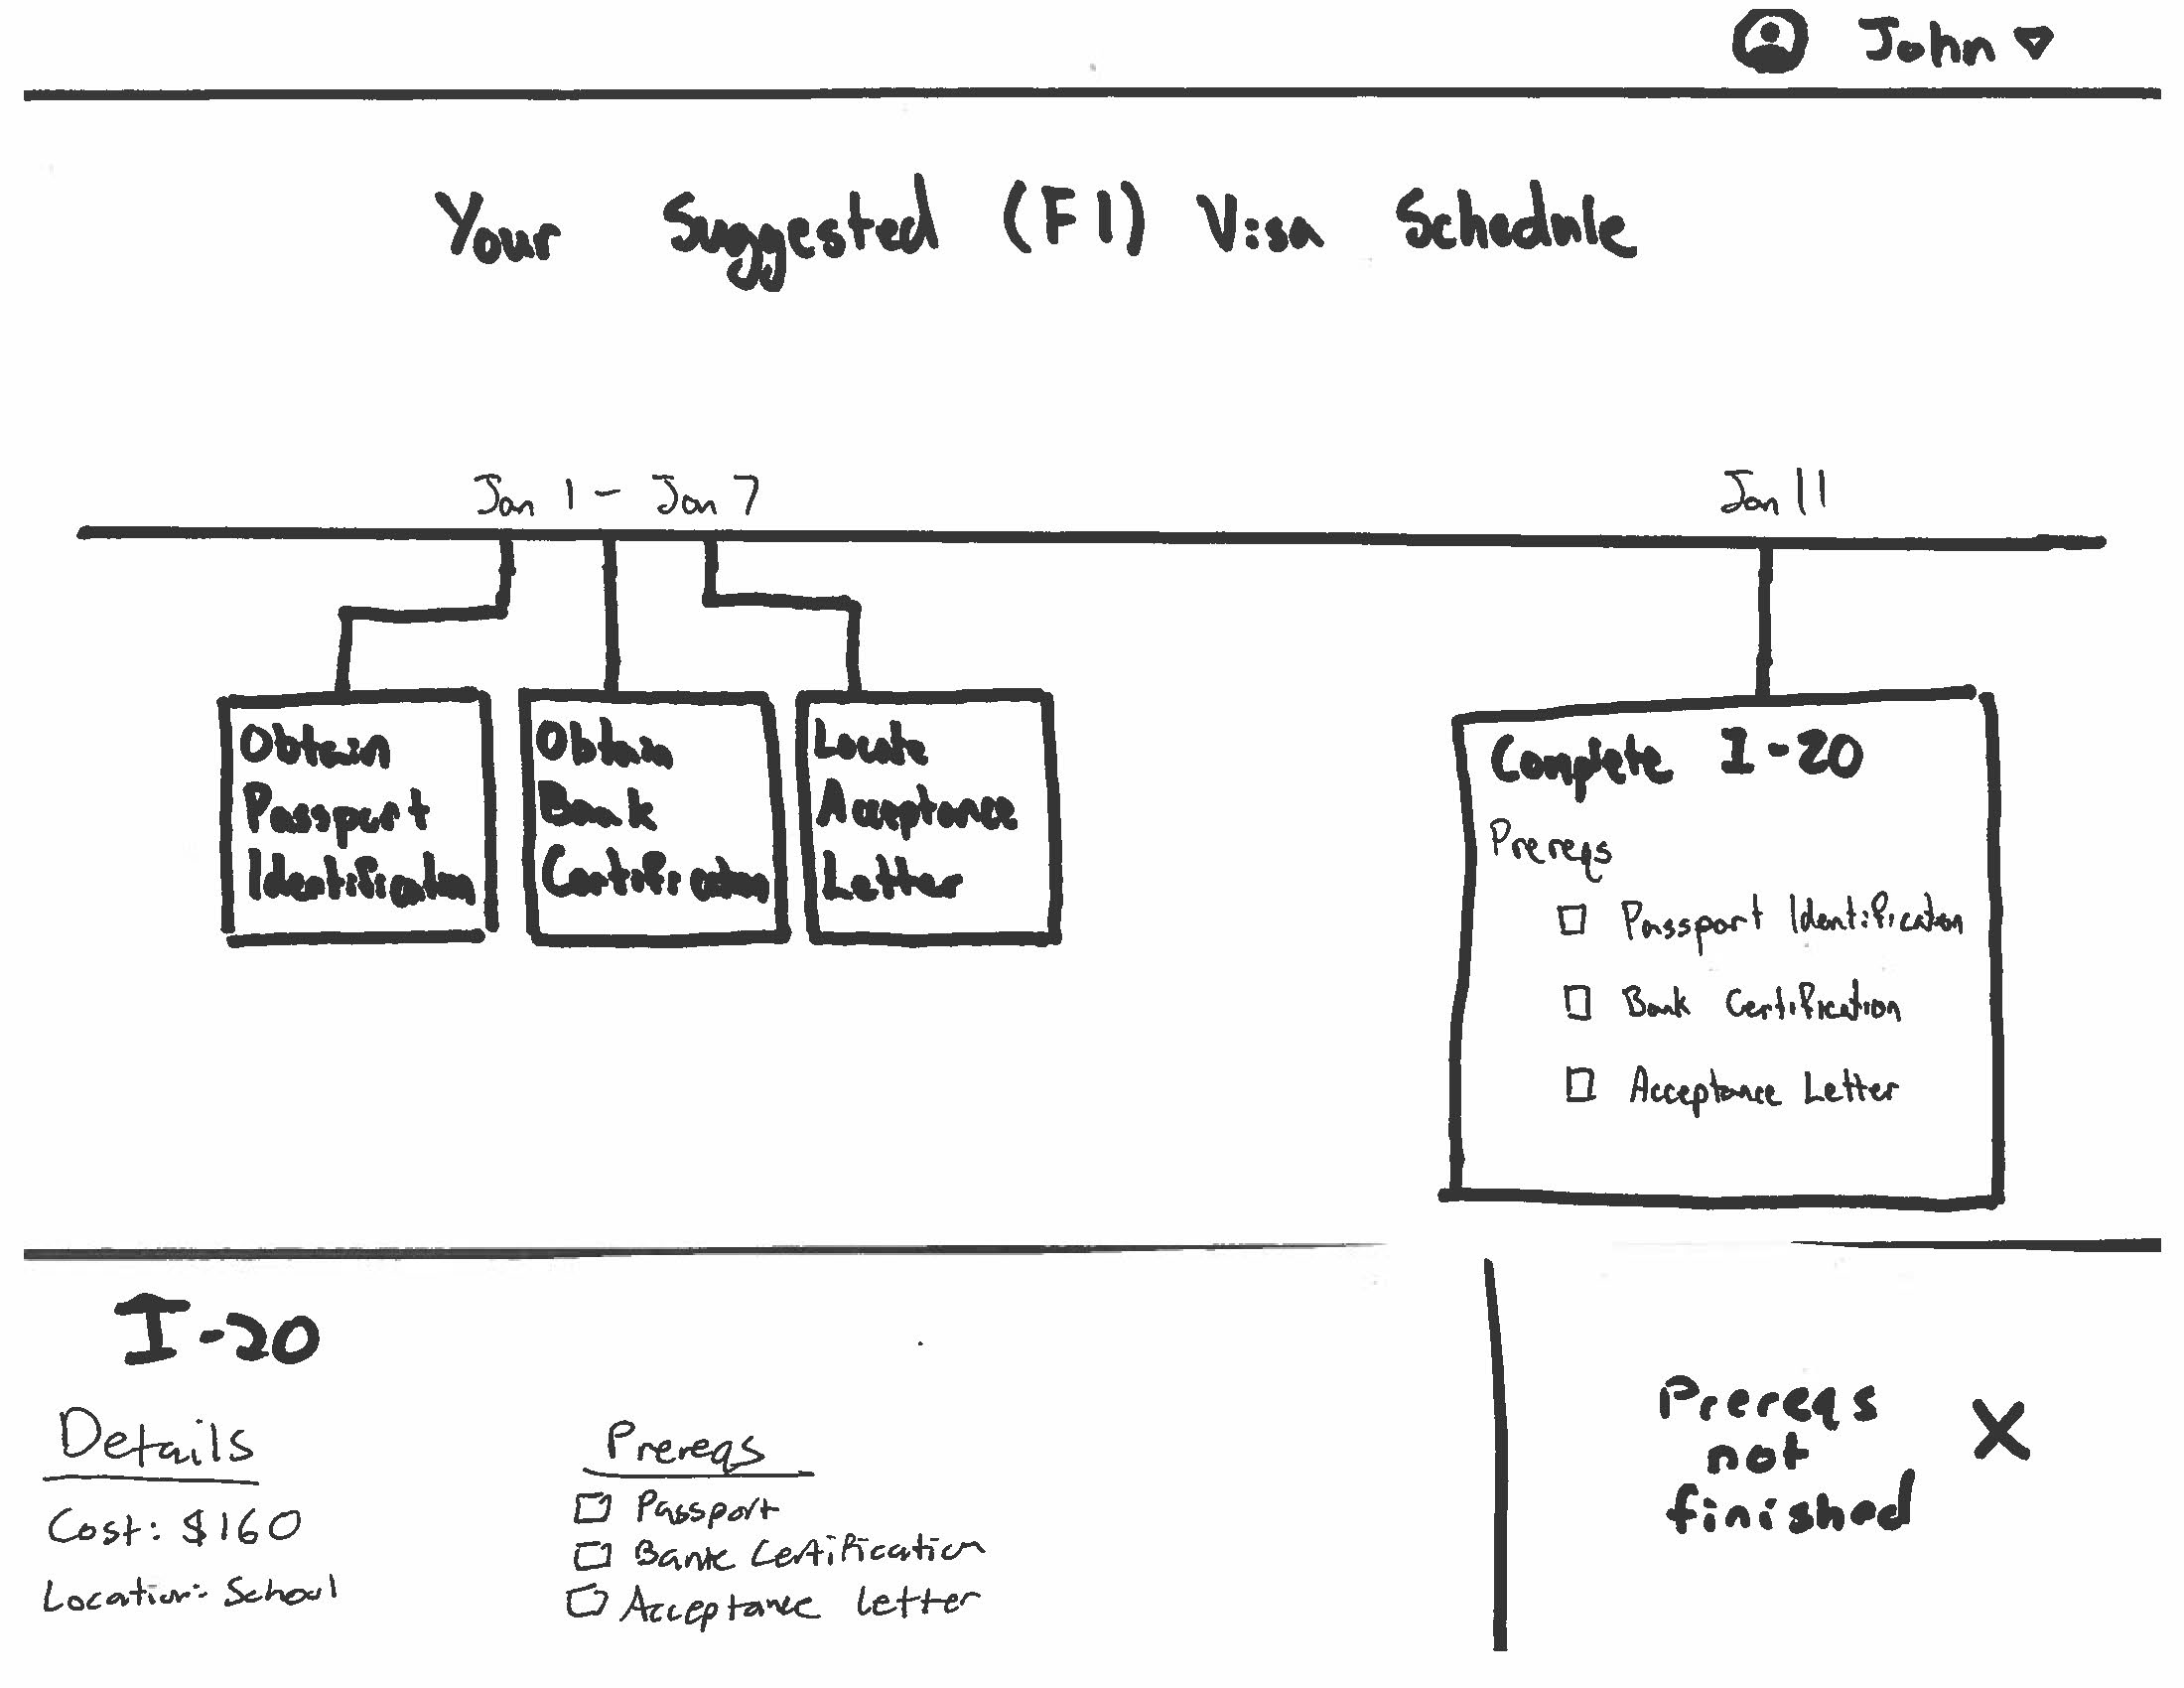 John
Your Suggested (F1) Visa Schedule
Jan 1 - Jan 7
Jan 11
Obtain
Passport
Identification
Obtain
Bank
Certification
Locate
Acceptance
Letter
Complete I-20
Prereqs
Passport Identification
Bank Certification
Acceptance Letter
I-20
Details
Cost: $160
Location: School
Prereqs
Passport
Bank Certification
Acceptance Letter
Prereqs
not
finished
X